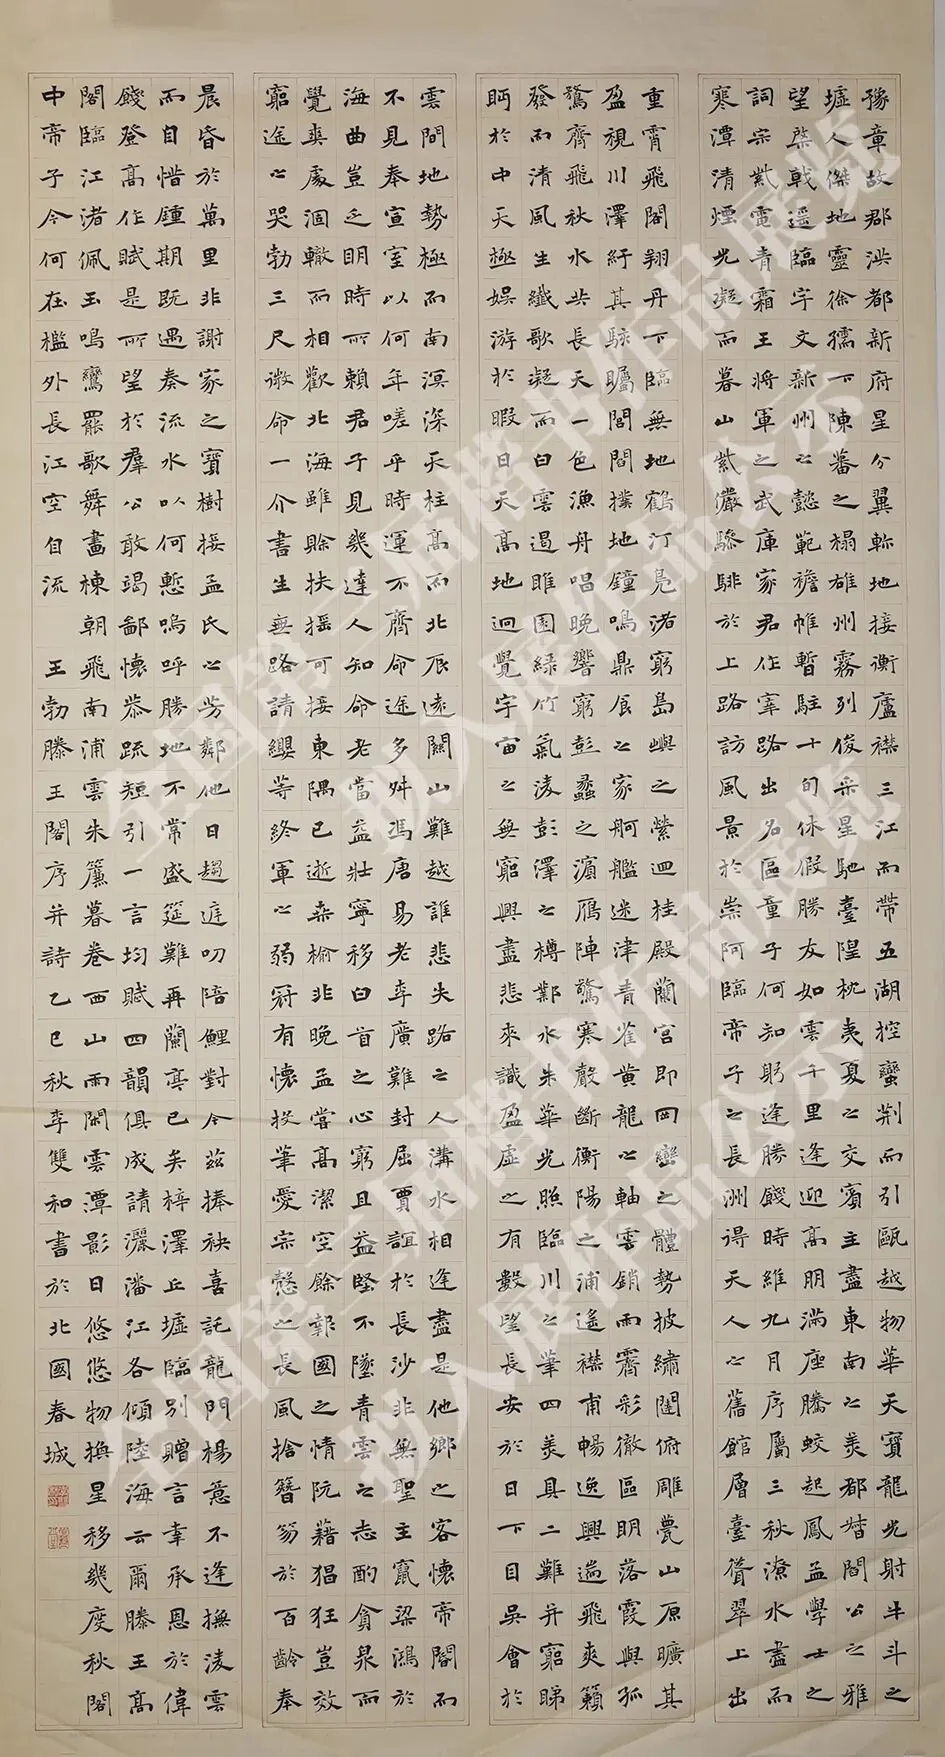 豫章故郡洪都新府星分翼軫地接衡廬襟三江而帶五湖控蠻荊而引甌越物華天寶龍光射牛斗之
墟人傑地靈徐孺下陳蕃之榻雄州霧列俊采星馳臺隍枕夷夏之交賓主盡東南之美都督閻公之雅
望棨戟遙臨宇文新州之懿範襜帷暫駐十旬休假勝友如雲千里逢迎高朋滿座騰蛟起鳳孟學士之
詞宗紫電青霜王將軍之武庫家君作宰路出名區童子何知躬逢勝餞時維九月序屬三秋潦水盡而
寒潭清煙光凝而暮山紫儼驂騑於上路訪風景於崇阿臨帝子之長洲得天人之舊館層臺聳翠上出
重霄飛閣翔丹下臨無地鶴汀鳧渚窮島嶼之縈迴桂殿蘭宮即岡巒之體勢披繡闥俯雕甍山原曠其
盈視川澤紆其駭矚閭閻撲地鐘鳴鼎食之家舸艦迷津青雀黃龍之軸雲銷雨霽彩徹區明落霞與孤
鶩齊飛秋水共長天一色漁舟唱晚響窮彭蠡之濱雁陣驚寒聲斷衡陽之浦遙襟甫暢逸興遄飛爽籟
發而清風生纖歌凝而白雲遏睢園綠竹氣凌彭澤之樽鄴水朱華光照臨川之筆四美具二難并窮睇
眄於中天極娛游於暇日天高地迥覺宇宙之無窮興盡悲來識盈虛之有數望長安於日下目吳會於
雲間地勢極而南溟深天柱高而北辰遠關山難越誰悲失路之人溝水相逢盡是他鄉之客懷帝閽而
不見奉宣室以何年嗟乎時運不齊命途多舛馮唐易老李廣難封屈賈誼於長沙非無聖主竄梁鴻於
海曲豈乏明時所賴君子見幾達人知命老當益壯寧移白首之心窮且益堅不墜青雲之志酌貪泉而
覺爽處涸轍而相歡北海雖賒扶搖可接東隅已逝桑榆非晚孟嘗高潔空餘報國之情阮藉猖狂豈效
窮途之哭勃三尺微命一介書生無路請纓等終軍之弱冠有懷投筆愛宗愨之長風捨簪笏於百齡奉
晨昏於萬里非謝家之寶樹接孟氏之芳鄰他日趨庭叨陪鯉對今茲捧袂喜託龍門楊意不逢撫凌雲
而自惜鍾期既遇奏流水以何慚嗚呼勝地不常盛筵難再蘭亭已矣梓澤丘墟臨別贈言幸承恩於偉
餞登高作賦是所望於群公敢竭鄙懷恭疏短引一言均賦四韻俱成請灑潘江各傾陸海云爾滕王高
閣臨江渚佩玉鳴鸞罷歌舞畫棟朝飛南浦雲朱簾暮卷西山雨閑雲潭影日悠悠物換星移幾度秋閣
中帝子今何在檻外長江空自流 王勃滕王閣序并詩乙巳秋李雙和書於北國春城
全国第三届楷书作品展览
拟入展作品公示
全国第三届楷书作品展览
拟入展作品公示